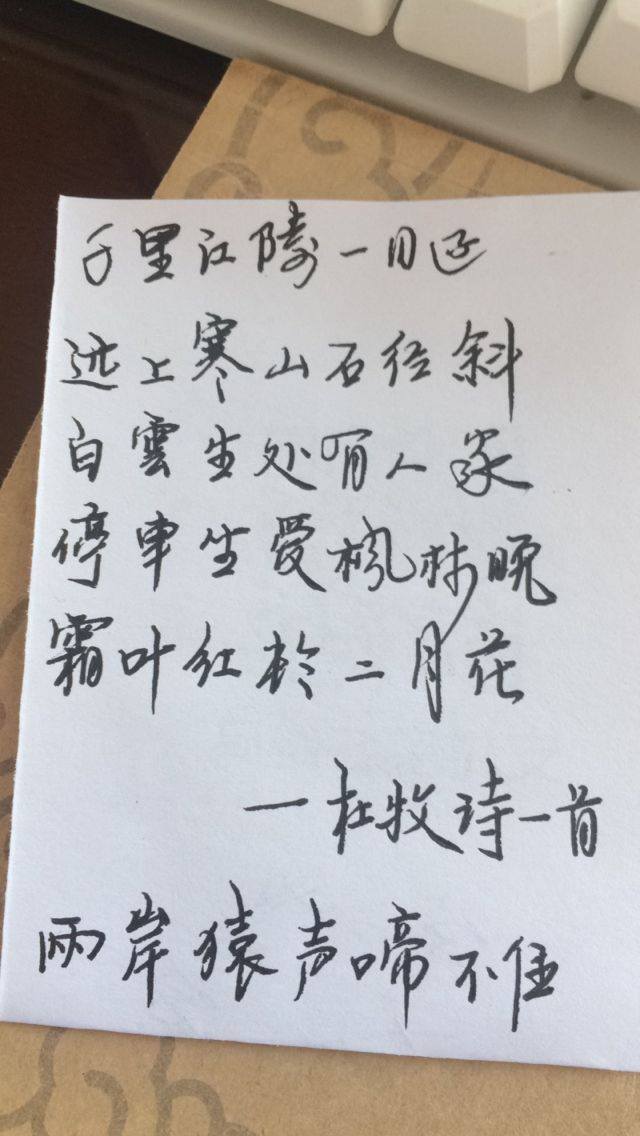 千里江陵一日还
远上寒山石径斜
白雲生处有人家
停车生爱枫林晚
霜叶红於二月花
一杜牧诗一首
两岸猿声啼不住